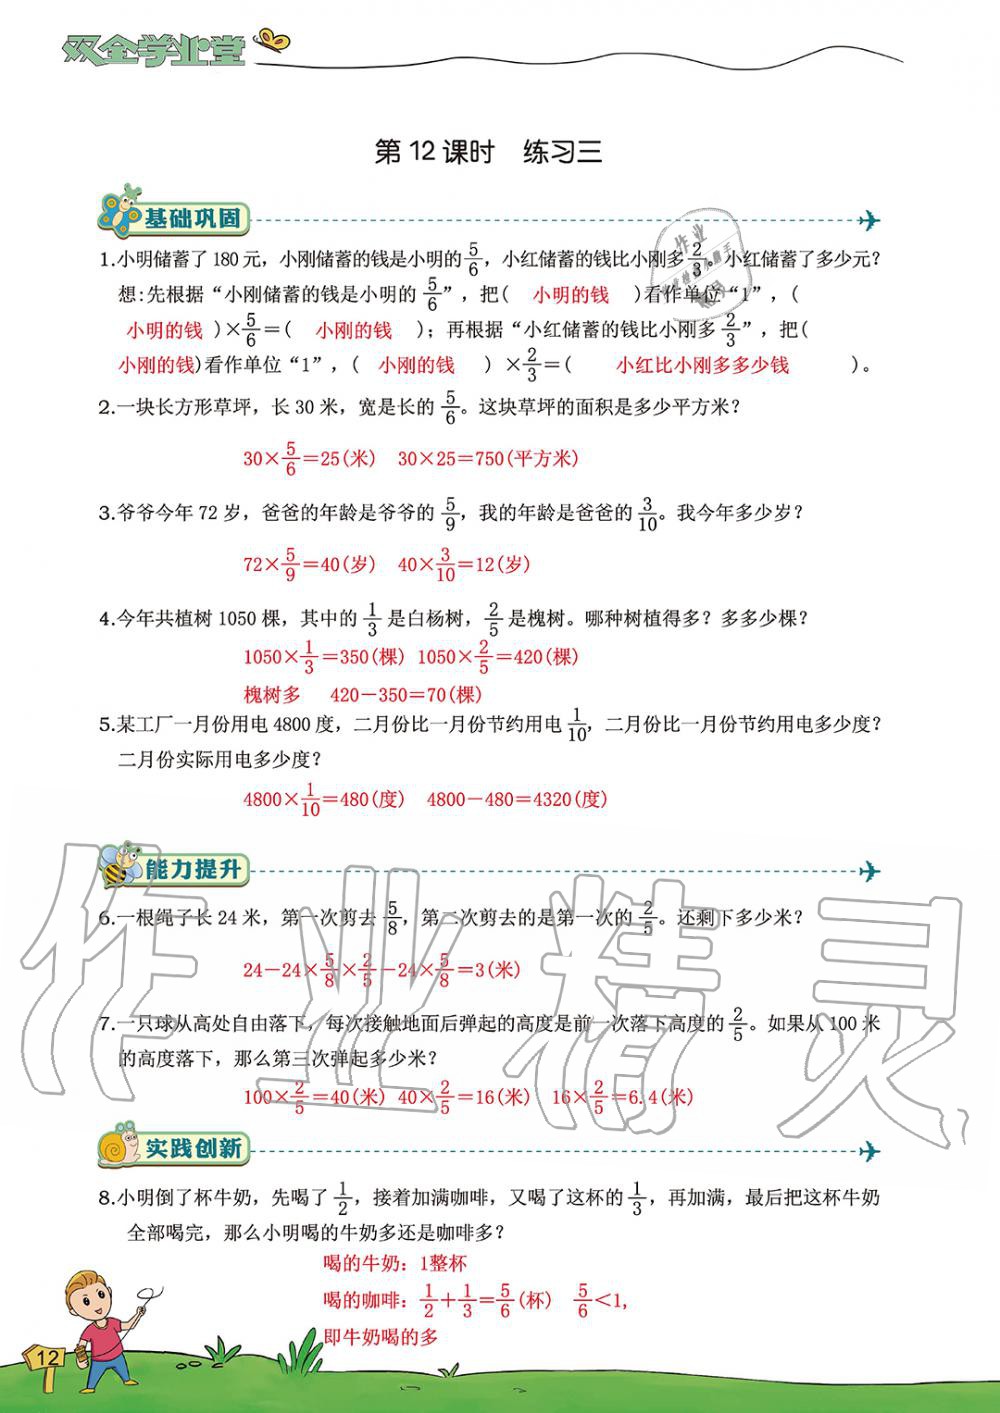 双全学业堂
第12课时　练习三
基础巩固
1.小明储蓄了180元，小刚储蓄的钱是小明的5/6，小红储蓄的钱比小刚多2/3。小红储蓄了多少元？
想:先根据“小刚储蓄的钱是小明的5/6”，把(　小明的钱　)看作单位“1”，(
小明的钱 )×5/6=(　小刚的钱　)；再根据“小红储蓄的钱比小刚多2/3”，把(
小刚的钱)看作单位“1”，(　小刚的钱　)×2/3=(　小红比小刚多多少钱　)。
2.一块长方形草坪，长30米，宽是长的5/6。这块草坪的面积是多少平方米？
30×5/6=25(米)　30×25=750(平方米)
3.爷爷今年72岁，爸爸的年龄是爷爷的5/9，我的年龄是爸爸的3/10。我今年多少岁？
72×5/9=40(岁)　40×3/10=12(岁)
4.今年共植树1050棵，其中的1/3是白杨树，2/5是槐树。哪种树植得多？多多少棵？
1050×1/3=350(棵) 1050×2/5=420(棵)
槐树多　420-350=70(棵)
5.某工厂一月份用电4800度，二月份比一月份节约用电1/10，二月份比一月份节约用电多少度？
二月份实际用电多少度？
4800×1/10=480(度)　4800-480=4320(度)
能力提升
6.一根绳子长24米，第一次剪去5/8，第二次剪去的是第一次的2/5。还剩下多少米？
24-24×5/8×2/5-24×5/8=3(米)
7.一只球从高处自由落下，每次接触地面后弹起的高度是前一次落下高度的2/5。如果从100米
的高度落下，那么第三次弹起多少米？
100×2/5=40(米) 40×2/5=16(米)　16×2/5=6.4(米)
实践创新
8.小明倒了杯牛奶，先喝了1/2，接着加满咖啡，又喝了这杯的1/3，再加满，最后把这杯牛奶
全部喝完，那么小明喝的牛奶多还是咖啡多？
喝的牛奶：1整杯
喝的咖啡：1/2+1/3=5/6(杯)　5/6<1,
即牛奶喝的多
12
作业精灵